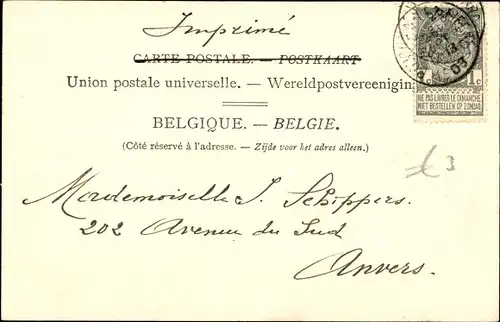 Imprimé
CARTE POSTALE. — POSTKAART
Union postale universelle. — Wereldpostvereeniging
BELGIQUE. — BELGIE.
(Côté réservé à l'adresse. — Zijde voor het adres alleen.)
1c
NE PAS LIVRER LE DIMANCHE
NIET BESTELLEN OP ZONDAG
3
Mademoiselle J. Schippers.
202 Avenue du Sud
Anvers.